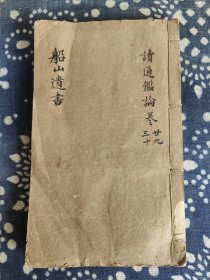 讀通鑑論卷廿九
三十
船山遺書